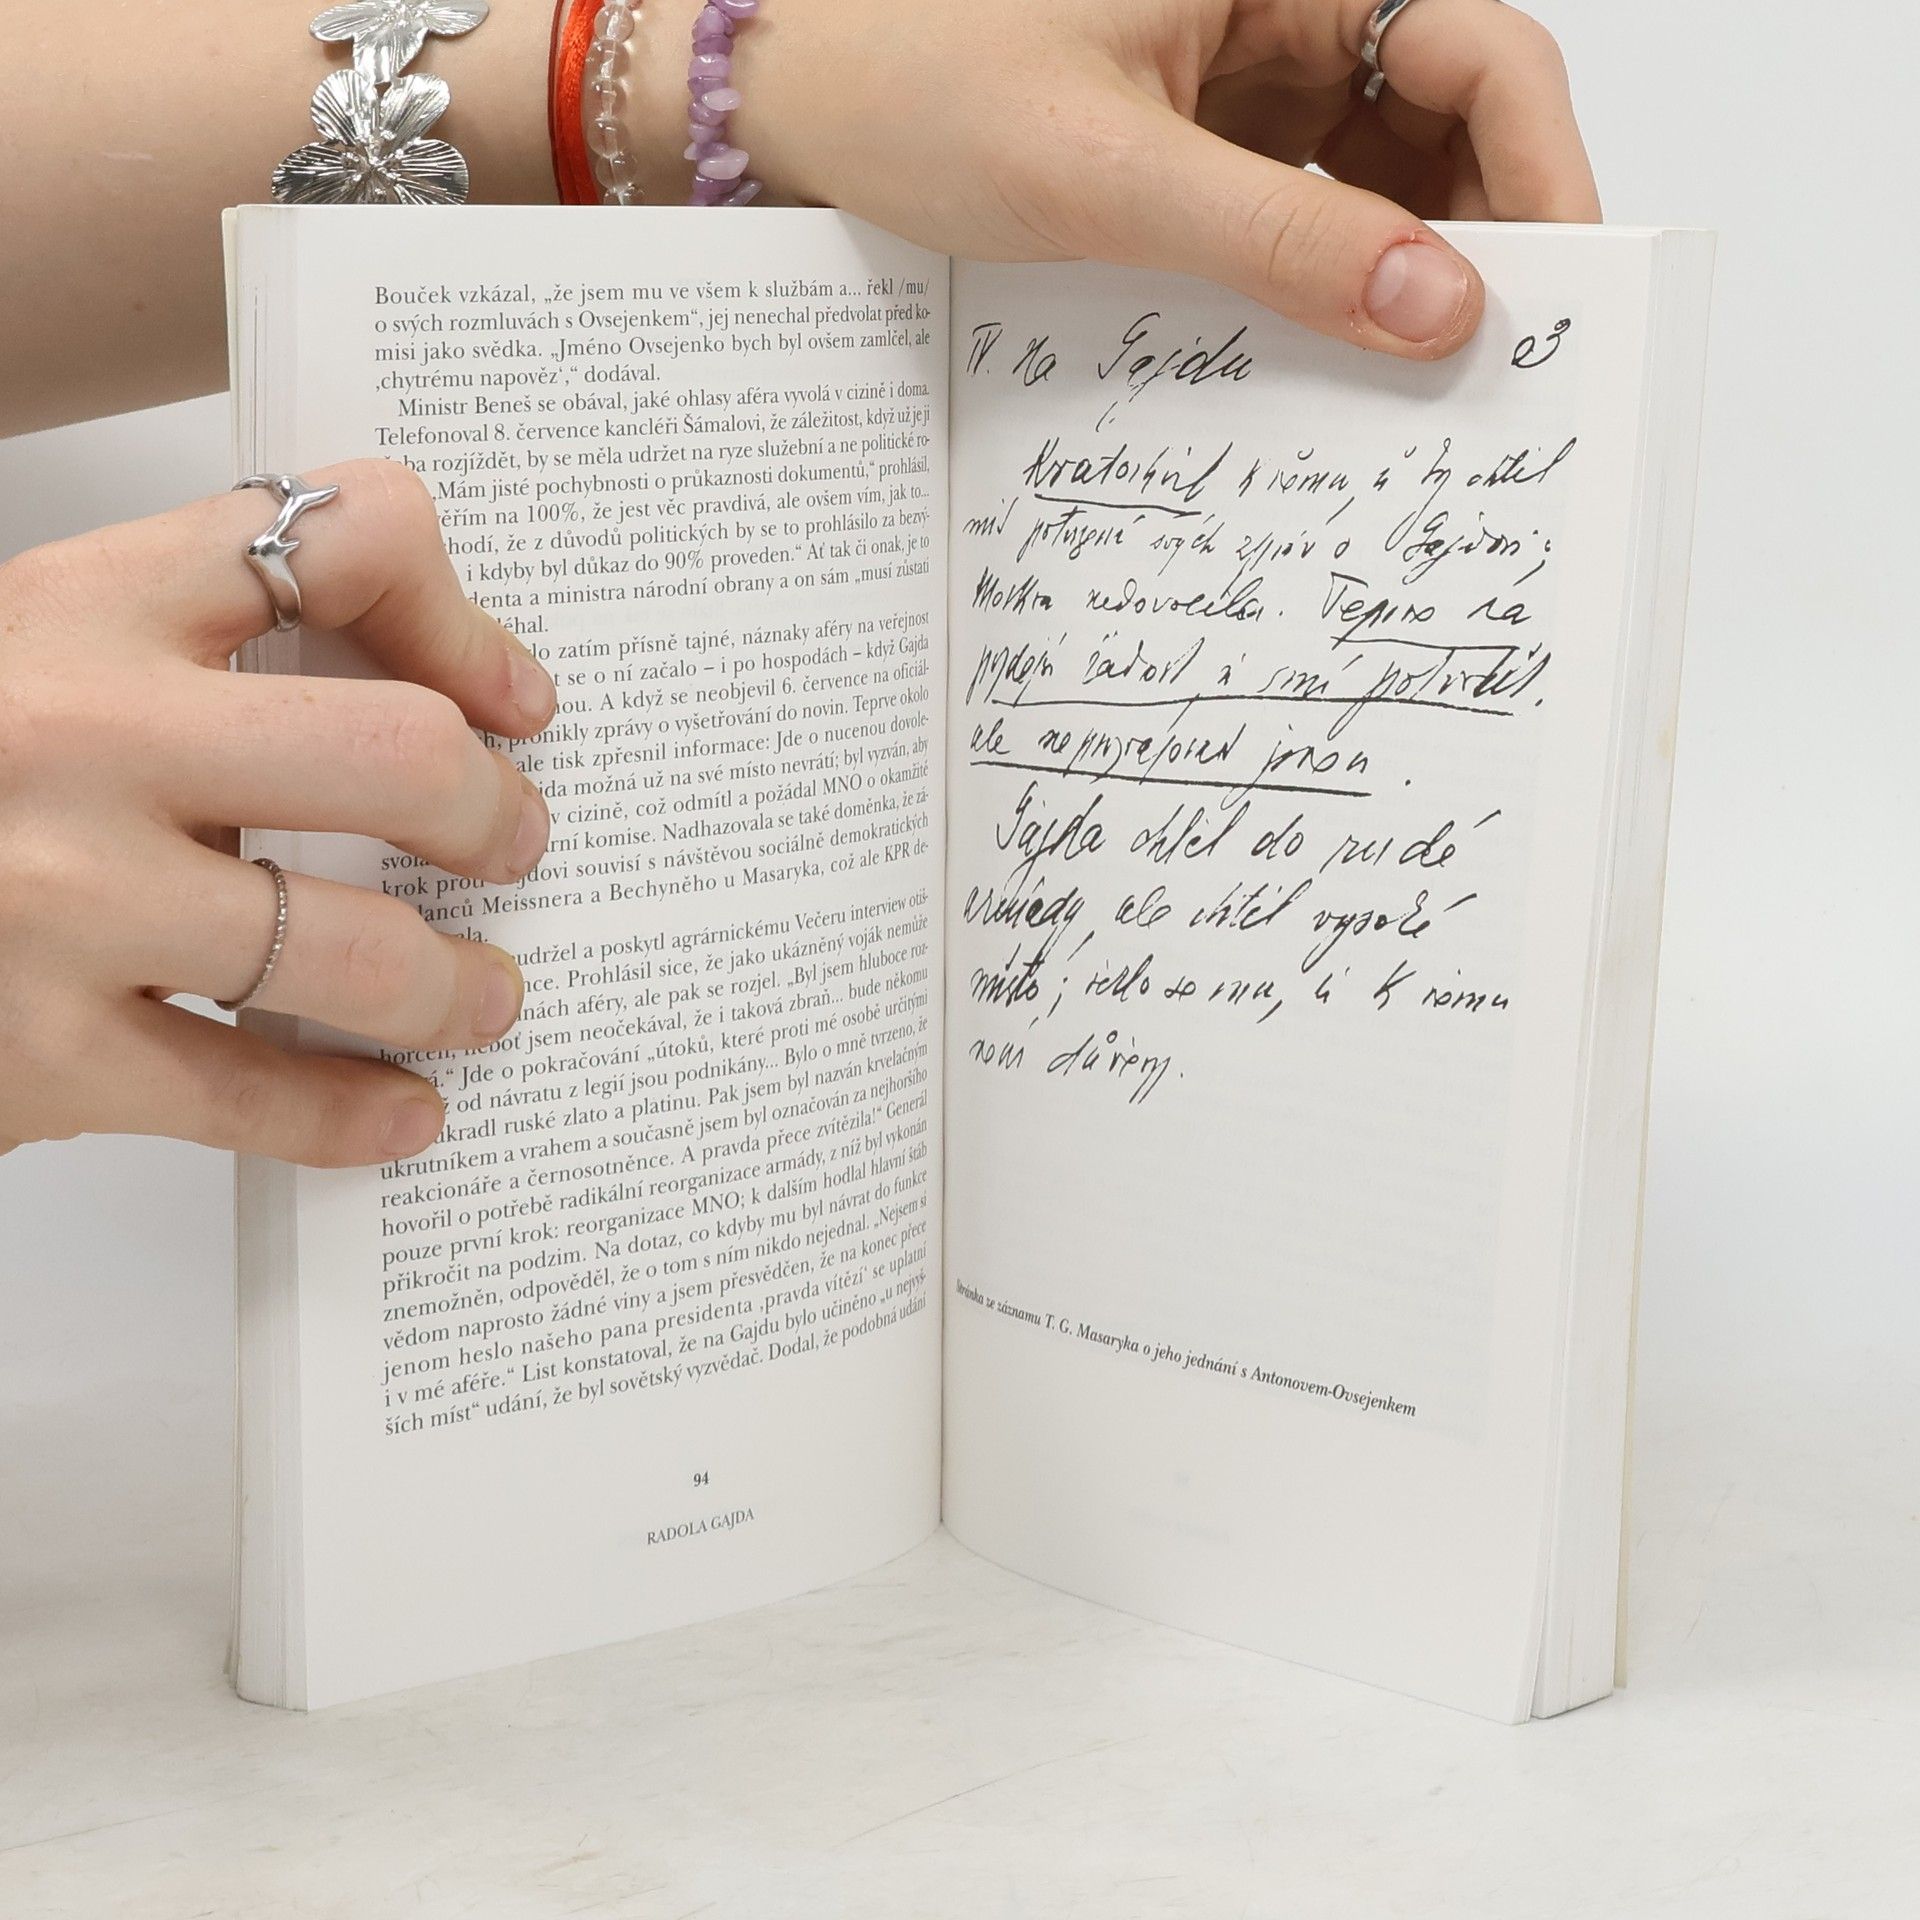 Bouček vzkázal, „že jsem mu ve všem k službám a... řekl /mu/
o svých rozmluvách s Ovsejenkem“, jej nenechal předvolat před ko-
misi jako svědka. „Jméno Ovsejenko bych byl ovšem zamlčel, ale
‚chytrému napověz‘,“ dodával.
Ministr Beneš se obával, jaké ohlasy aféra vyvolá v cizině i doma.
Telefonoval 8. července kancléři Šámalovi, že záležitost, když už je ji
rozjíždět, by se měla udržet na ryze služební a ne politické ro-
„Mám jisté pochybnosti o průkaznosti dokumentů,“ prohlásil,
na 100%, že jest věc pravdivá, ale ovšem vím, jak to...
že z důvodů politických by se to prohlásilo za bezvý-
i kdyby byl důkaz do 90% proveden.“ Ať tak či onak, je to
a ministra národní obrany a on sám „musí zůstati
zatím přísně tajné, náznaky aféry na veřejnost
se o ní začalo – i po hospodách – když Gajda
A když se neobjevil 6. července na oficiál-
pronikly zprávy o vyšetřování do novin. Teprve okolo
ale tisk zpřesnil informace: Jde o nucenou dovole-
možná už na své místo nevrátí; byl vyzván, aby
v cizině, což odmítl a požádal MNO o okamžité
komise. Nadhazovala se také doměnka, že zá-
krok proti Gajdovi souvisí s návštěvou sociálně demokratických
Meissnera a Bechyněho u Masaryka, což ale KPR de-
a poskytl agrárnickému Večeru interview otiš-
Prohlásil sice, že jako ukázněný voják nemůže
aféry, ale pak se rozjel. „Byl jsem hluboce roz-
hořčen, neboť jsem neočekával, že i taková zbraň... bude někomu
Jde o pokračování „útoků, které proti mé osobě určitými
od návratu z legií jsou podnikány... Bylo o mně tvrzeno, že
ukradl ruské zlato a platinu. Pak jsem byl nazván krvelačným
ukrutníkem a vrahem a současně jsem byl označován za nejhoršího
reakcionáře a černosotněnce. A pravda přece zvítězila!“ Generál
hovořil o potřebě radikální reorganizace armády, z níž byl vykonán
pouze první krok: reorganizace MNO; k dalším hodlal hlavní štáb
přikročit na podzim. Na dotaz, co kdyby mu byl návrat do funkce
znemožněn, odpověděl, že o tom s ním nikdo nejednal. „Nejsem si
vědom naprosto žádné viny a jsem přesvědčen, že na konec přece
jenom heslo našeho pana presidenta ‚pravda vítězí‘ se uplatní
i v mé aféře.“ List konstatoval, že na Gajdu bylo učiněno „u nejvyš-
ších míst“ udání, že byl sovětský vyzvědač. Dodal, že podobná udání
94
RADOLA GAJDA
IV. na Gajdu
23
Kratochvil k němu, by chtěl
míti potvrzení svých zpráv o Gajdovi;
Moskva nedovolila. Teprve na
žádost, smí potvrdit,
ale
Gajda chtěl do rudé
armády, ale chtěl vysoké
místo; řeklo se mu, k němu
není důvěry.
Stránka ze záznamu T. G. Masaryka o jeho jednání s Antonovem-Ovsejenkem